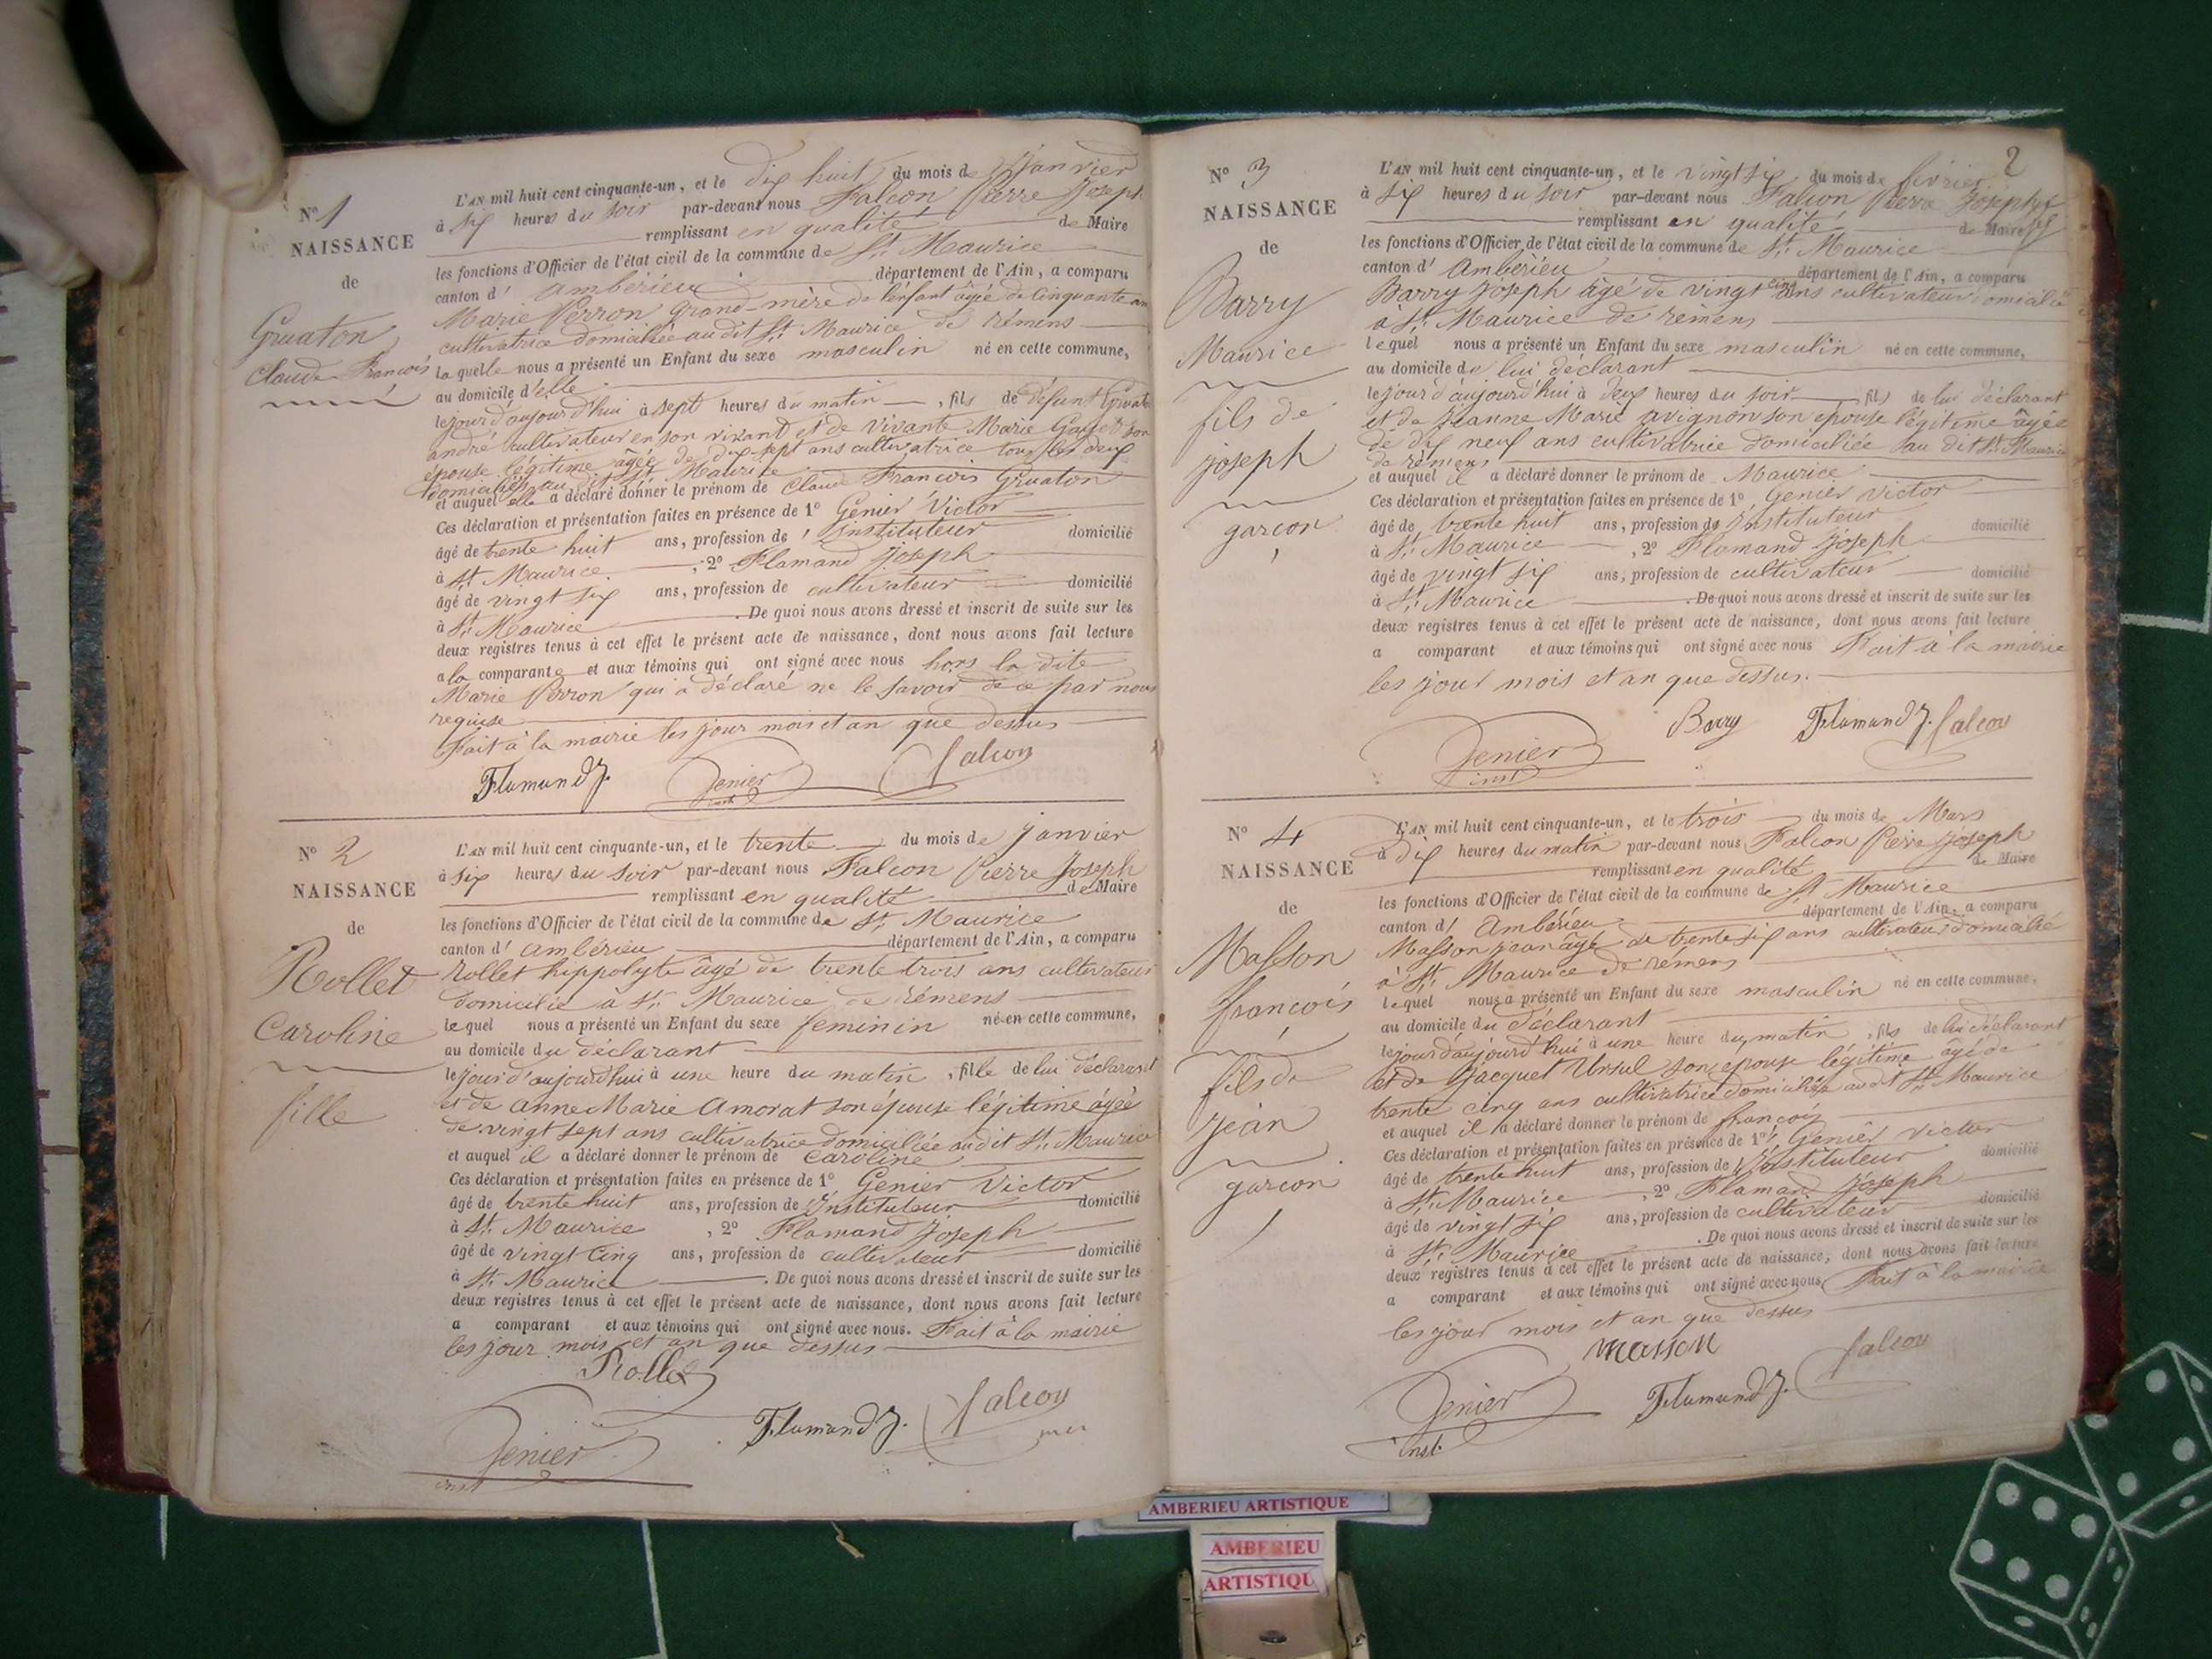 N° 1
NAISSANCE
de
Gruaton
Claude François
L'AN mil huit cent cinquante-un, et le dix huit du mois de Janvier
à six heures du soir par-devant nous Falcon Pierre Joseph
remplissant en qualité de Maire
les fonctions d'Officier de l'état civil de la commune de St Maurice
canton d' ambérieu département de l'Ain, a comparu
Marie Perron grand-mère de l'enfant âgée de cinquante ans
cultivatrice domiciliée au dit St Maurice de rémens
la quelle nous a présenté un Enfant du sexe masculin né en cette commune,
au domicile d'elle
le jour d'aujourd'hui à sept heures du matin, fils de défunt Gruaton
andré cultivateur en son vivant et de vivante Marie son
épouse légitime âgée de dix-sept ans cultivatrice tous les deux
domiciliés au dit St Maurice
et auquel elle a déclaré donner le prénom de Claude François Gruaton
Ces déclaration et présentation faites en présence de 1° Genier Victor
âgé de trente huit ans, profession de Instituteur domicilié
à St Maurice, 2° Flamand Joseph
âgé de vingt six ans, profession de cultivateur domicilié
à St Maurice. De quoi nous avons dressé et inscrit de suite sur les
deux registres tenus à cet effet le présent acte de naissance, dont nous avons fait lecture
a la comparante et aux témoins qui ont signé avec nous hors la dite
Marie Perron qui a déclaré ne le savoir de ce par nous
requise
Fait à la mairie les jour mois et an que dessus
Flamand J. Genier inst Falcon
N° 2
NAISSANCE
de
Rollet
Caroline
fille
L'AN mil huit cent cinquante-un, et le trente du mois de janvier
à six heures du soir par-devant nous Falcon Pierre Joseph
remplissant en qualité de Maire
les fonctions d'Officier de l'état civil de la commune de St Maurice
canton d' ambérieu département de l'Ain, a comparu
Rollet hippolyte âgé de trente trois ans cultivateur
domicilié à St Maurice de rémens
lequel nous a présenté un Enfant du sexe feminin né en cette commune,
au domicile du déclarant
le jour d'aujourd'hui à une heure du matin, fille de lui déclarant
et de anne Marie Amorat son épouse légitime âgée
de vingt sept ans cultivatrice domiciliée audit St Maurice
et auquel il a déclaré donner le prénom de Caroline
Ces déclaration et présentation faites en présence de 1° Genier Victor
âgé de trente huit ans, profession de Instituteur domicilié
à St Maurice, 2° Flamand Joseph
âgé de vingt cinq ans, profession de cultivateur domicilié
à St Maurice. De quoi nous avons dressé et inscrit de suite sur les
deux registres tenus à cet effet le présent acte de naissance, dont nous avons fait lecture
a comparant et aux témoins qui ont signé avec nous. Fait à la mairie
les jour mois et an que dessus
Rollet
Genier inst Flamand J. Falcon
2
N° 3
NAISSANCE
de
Barry
Maurice
fils de
joseph
garçon
L'AN mil huit cent cinquante-un, et le vingt six du mois de février
à six heures du soir par-devant nous Falcon Pierre Joseph
remplissant en qualité de Maire
les fonctions d'Officier de l'état civil de la commune de St Maurice
canton d' Ambérieu département de l'Ain, a comparu
Barry Joseph âgé de vingt cinq ans cultivateur domicilié
à St Maurice de rémens
lequel nous a présenté un Enfant du sexe masculin né en cette commune,
au domicile de lui déclarant
le jour d'aujourd'hui à deux heures du soir, fils de lui déclarant
et de Jeanne Marie avignon son épouse légitime âgée
de dix neuf ans cultivatrice domiciliée au dit St Maurice
de rémens
et auquel il a déclaré donner le prénom de Maurice
Ces déclaration et présentation faites en présence de 1° Genier victor
âgé de trente huit ans, profession de Instituteur domicilié
à St Maurice, 2° Flamand Joseph
âgé de vingt six ans, profession de cultivateur domicilié
à St Maurice. De quoi nous avons dressé et inscrit de suite sur les
deux registres tenus à cet effet le présent acte de naissance, dont nous avons fait lecture
a comparant et aux témoins qui ont signé avec nous Fait à la mairie
les jour mois et an que dessus.
Barry Flamand J. Falcon
Genier inst
N° 4
NAISSANCE
de
Masson
françois
fils de
jean
garçon
L'AN mil huit cent cinquante-un, et le trois du mois de Mars
à dix heures du matin par-devant nous Falcon Pierre Joseph
remplissant en qualité de Maire
les fonctions d'Officier de l'état civil de la commune de St Maurice
canton d' Ambérieu département de l'Ain, a comparu
Masson jean âgé de trente six ans cultivateur domicilié
à St Maurice de rémens
lequel nous a présenté un Enfant du sexe masculin né en cette commune,
au domicile du déclarant
le jour d'aujourd'hui à une heure du matin, fils de lui déclarant
et de Jacquet Ursul son épouse légitime âgé de
trente cinq ans cultivatrice domiciliée au dit St Maurice
et auquel il a déclaré donner le prénom de françois
Ces déclaration et présentation faites en présence de 1° Genier victor
âgé de trente huit ans, profession de Instituteur domicilié
à St Maurice, 2° Flamand Joseph
âgé de vingt six ans, profession de cultivateur domicilié
à St Maurice. De quoi nous avons dressé et inscrit de suite sur les
deux registres tenus à cet effet le présent acte de naissance, dont nous avons fait lecture
a comparant et aux témoins qui ont signé avec nous Fait à la mairie
les jour mois et an que dessus
Masson
Genier inst. Flamand J. Falcon
AMBERIEU ARTISTIQUE
AMBERIEU
ARTISTIQU